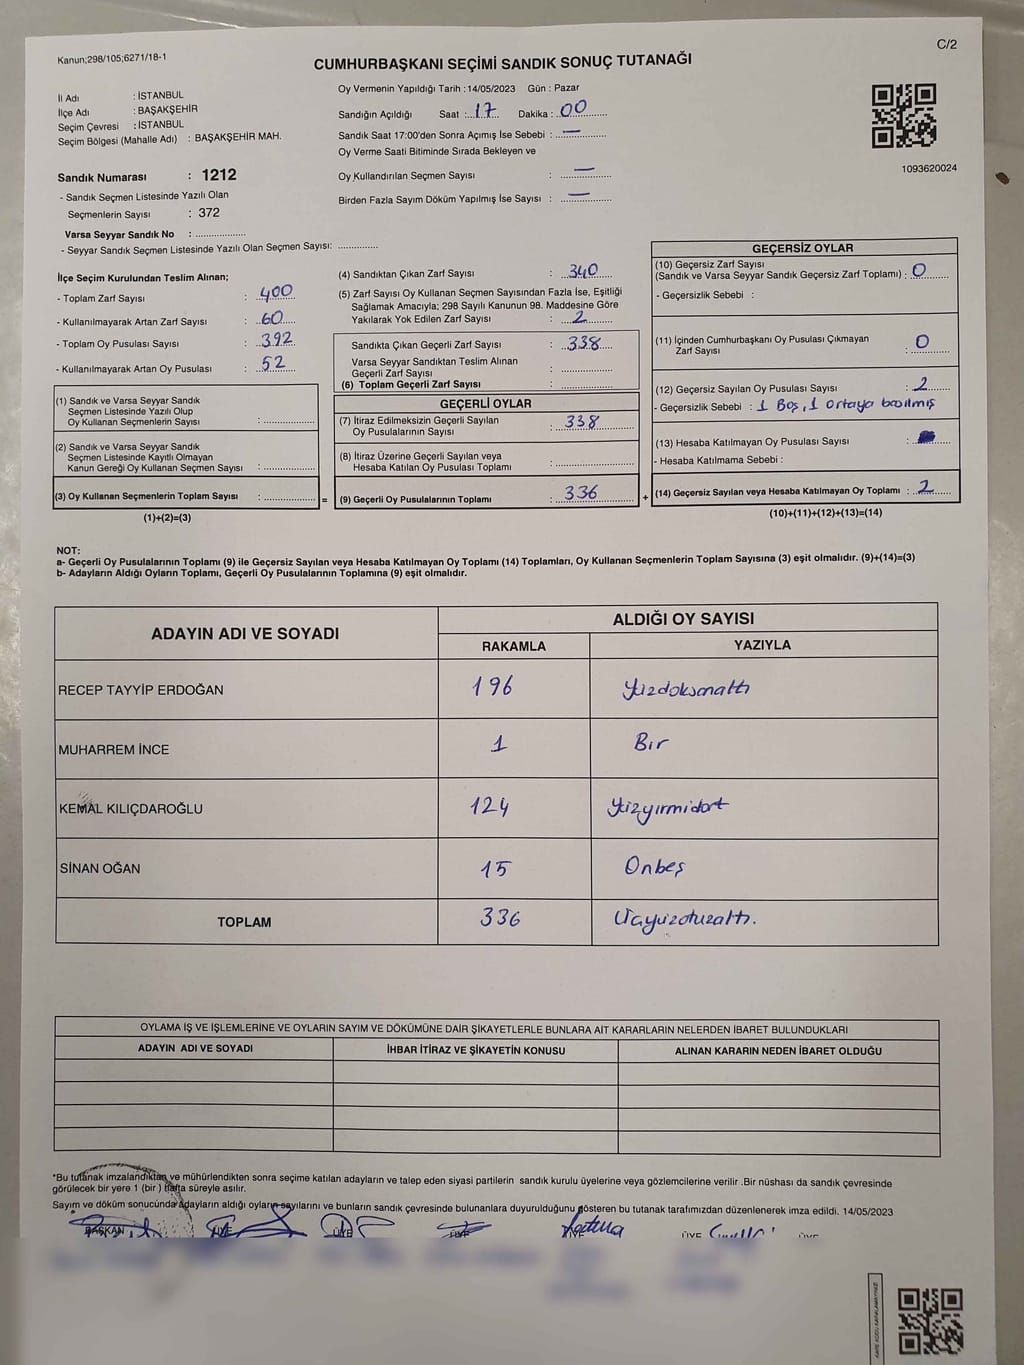 Kanun;298/105;6271/18-1
C/2
CUMHURBAŞKANI SEÇİMİ SANDIK SONUÇ TUTANAĞI
İl Adı : İSTANBUL
İlçe Adı : BAŞAKŞEHİR
Seçim Çevresi : İSTANBUL
Seçim Bölgesi (Mahalle Adı) : BAŞAKŞEHİR MAH.
Sandık Numarası : 1212
- Sandık Seçmen Listesinde Yazılı Olan
Seçmenlerin Sayısı : 372
Varsa Seyyar Sandık No : ..............
- Seyyar Sandık Seçmen Listesinde Yazılı Olan Seçmen Sayısı: ............
Oy Vermenin Yapıldığı Tarih :14/05/2023 Gün : Pazar
Sandığın Açıldığı Saat :..17.. Dakika :.00....
Sandık Saat 17:00'den Sonra Açımış İse Sebebi : ..—..........
Oy Verme Saati Bitiminde Sırada Bekleyen ve
Oy Kullandırılan Seçmen Sayısı : ...—...........
Birden Fazla Sayım Döküm Yapılmış İse Sayısı : ..—...........
1093620024
İlçe Seçim Kurulundan Teslim Alınan;
- Toplam Zarf Sayısı : 400
- Kullanılmayarak Artan Zarf Sayısı : 60
- Toplam Oy Pusulası Sayısı : 392
- Kullanılmayarak Artan Oy Pusulası : 52
(1) Sandık ve Varsa Seyyar Sandık
Seçmen Listesinde Yazılı Olup
Oy Kullanan Seçmenlerin Sayısı : ..............
(2) Sandık ve Varsa Seyyar Sandık
Seçmen Listesinde Kayıtlı Olmayan
Kanun Gereği Oy Kullanan Seçmen Sayısı : ..............
(3) Oy Kullanan Seçmenlerin Toplam Sayısı : .............. =
(1)+(2)=(3)
(4) Sandıktan Çıkan Zarf Sayısı : 340
(5) Zarf Sayısı Oy Kullanan Seçmen Sayısından Fazla İse, Eşitliği
Sağlamak Amacıyla; 298 Sayılı Kanunun 98. Maddesine Göre
Yakılarak Yok Edilen Zarf Sayısı : 2
Sandıkta Çıkan Geçerli Zarf Sayısı : 338
Varsa Seyyar Sandıktan Teslim Alınan
Geçerli Zarf Sayısı : ..............
(6) Toplam Geçerli Zarf Sayısı : ..............
GEÇERLİ OYLAR
(7) İtiraz Edilmeksizin Geçerli Sayılan
Oy Pusulalarının Sayısı : 338
(8) İtiraz Üzerine Geçerli Sayılan veya
Hesaba Katılan Oy Pusulası Toplamı : ..............
(9) Geçerli Oy Pusulalarının Toplamı : 336 +
GEÇERSİZ OYLAR
(10) Geçersiz Zarf Sayısı
(Sandık ve Varsa Seyyar Sandık Geçersiz Zarf Toplamı) : 0
- Geçersizlik Sebebi :
(11) İçinden Cumhurbaşkanı Oy Pusulası Çıkmayan
Zarf Sayısı : 0
(12) Geçersiz Sayılan Oy Pusulası Sayısı : 2
- Geçersizlik Sebebi : 1 Boş, 1 ortaya basılmış
(13) Hesaba Katılmayan Oy Pusulası Sayısı :
- Hesaba Katılmama Sebebi :
(14) Geçersiz Sayılan veya Hesaba Katılmayan Oy Toplamı : 2
(10)+(11)+(12)+(13)=(14)
NOT:
a- Geçerli Oy Pusulalarının Toplamı (9) ile Geçersiz Sayılan veya Hesaba Katılmayan Oy Toplamı (14) Toplamları, Oy Kullanan Seçmenlerin Toplam Sayısına (3) eşit olmalıdır. (9)+(14)=(3)
b- Adayların Aldığı Oyların Toplamı, Geçerli Oy Pusulalarının Toplamına (9) eşit olmalıdır.
ADAYIN ADI VE SOYADI
ALDIĞI OY SAYISI
RAKAMLA YAZIYLA
RECEP TAYYİP ERDOĞAN 196 Yüzdoksanaltı
MUHARREM İNCE 1 Bir
KEMAL KILIÇDAROĞLU 124 Yüzyirmidört
SİNAN OĞAN 15 Onbeş
TOPLAM 336 Üçyüzotuzaltı.
OYLAMA İŞ VE İŞLEMLERİNE VE OYLARIN SAYIM VE DÖKÜMÜNE DAİR ŞİKAYETLERLE BUNLARA AİT KARARLARIN NELERDEN İBARET BULUNDUKLARI
ADAYIN ADI VE SOYADI İHBAR İTİRAZ VE ŞİKAYETİN KONUSU ALINAN KARARIN NEDEN İBARET OLDUĞU
*Bu tutanak imzalandıktan ve mühürlendikten sonra seçime katılan adayların ve talep eden siyasi partilerin sandık kurulu üyelerine veya gözlemcilerine verilir .Bir nüshası da sandık çevresinde
görülecek bir yere 1 (bir ) hafta süreyle asılır.
Sayım ve döküm sonucunda adayların aldığı oyların sayılarını ve bunların sandık çevresinde bulunanlara duyurulduğunu gösteren bu tutanak tarafımızdan düzenlenerek imza edildi. 14/05/2023
BAŞKAN ÜYE ÜYE ÜYE ÜYE ÜYE ÜYE